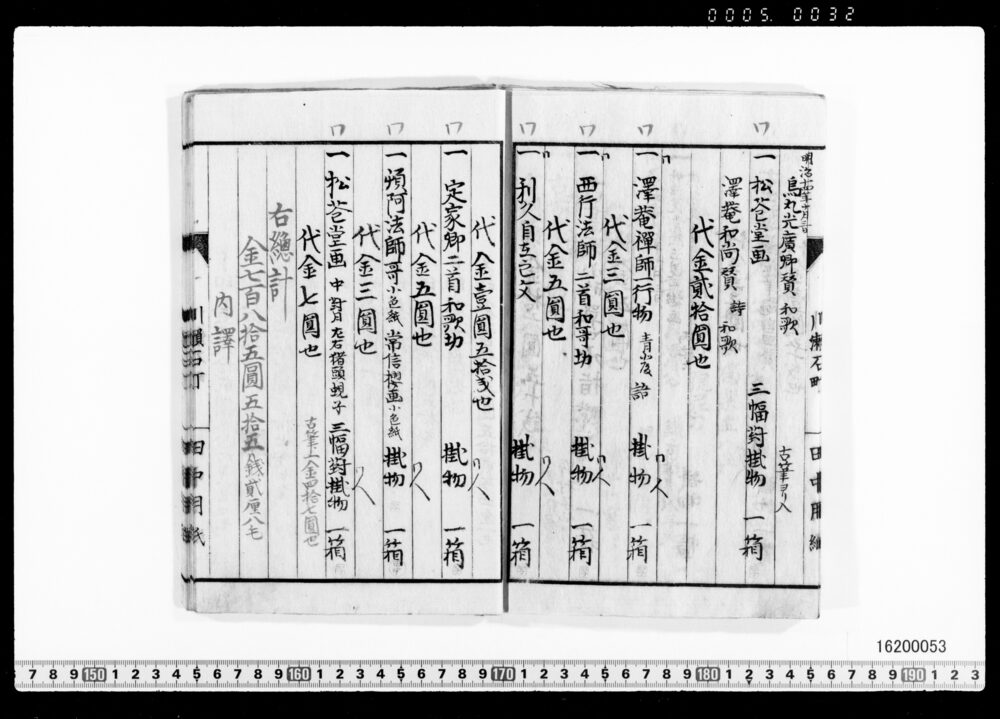 0005. 0032
川瀬石町
田中用紙
明治
烏丸光廣卿賛 和歌
ワ
一 松花堂画 三幅対掛物 一箱
古筆ヨリ入
澤菴和尚賛 詩 和歌
代金貳拾圓也
ワ
一 澤菴禪師一行物 掛物 一箱
代金三圓也
ワ
一 西行法師 二首和哥切 掛物 一箱
代金五圓也
ワ
一 利久自在之文 掛物 一箱
代金壹圓五拾戔也
ワ
一 定家卿 二首和歌切 掛物 一箱
代金五圓也
ワ
一 頓阿法師哥小色紙 常信櫻画小色紙 掛物 一箱
代金三圓也
ワ
一 松花堂画 中 左右猪頭蜆子 三幅対掛物 一箱
代金七圓也
古筆入金四拾七圓也
右總計
金七百八拾五圓五拾五銭貳厘八毛
内譯
川瀬石町
田中用紙
16200053
7 8 9 150 1 2 3 4 5 6 7 8 9 160 1 2 3 4 5 6 7 8 9 170 1 2 3 4 5 6 7 8 9 180 1 2 3 4 5 6 7 8 9 190 1 2 3